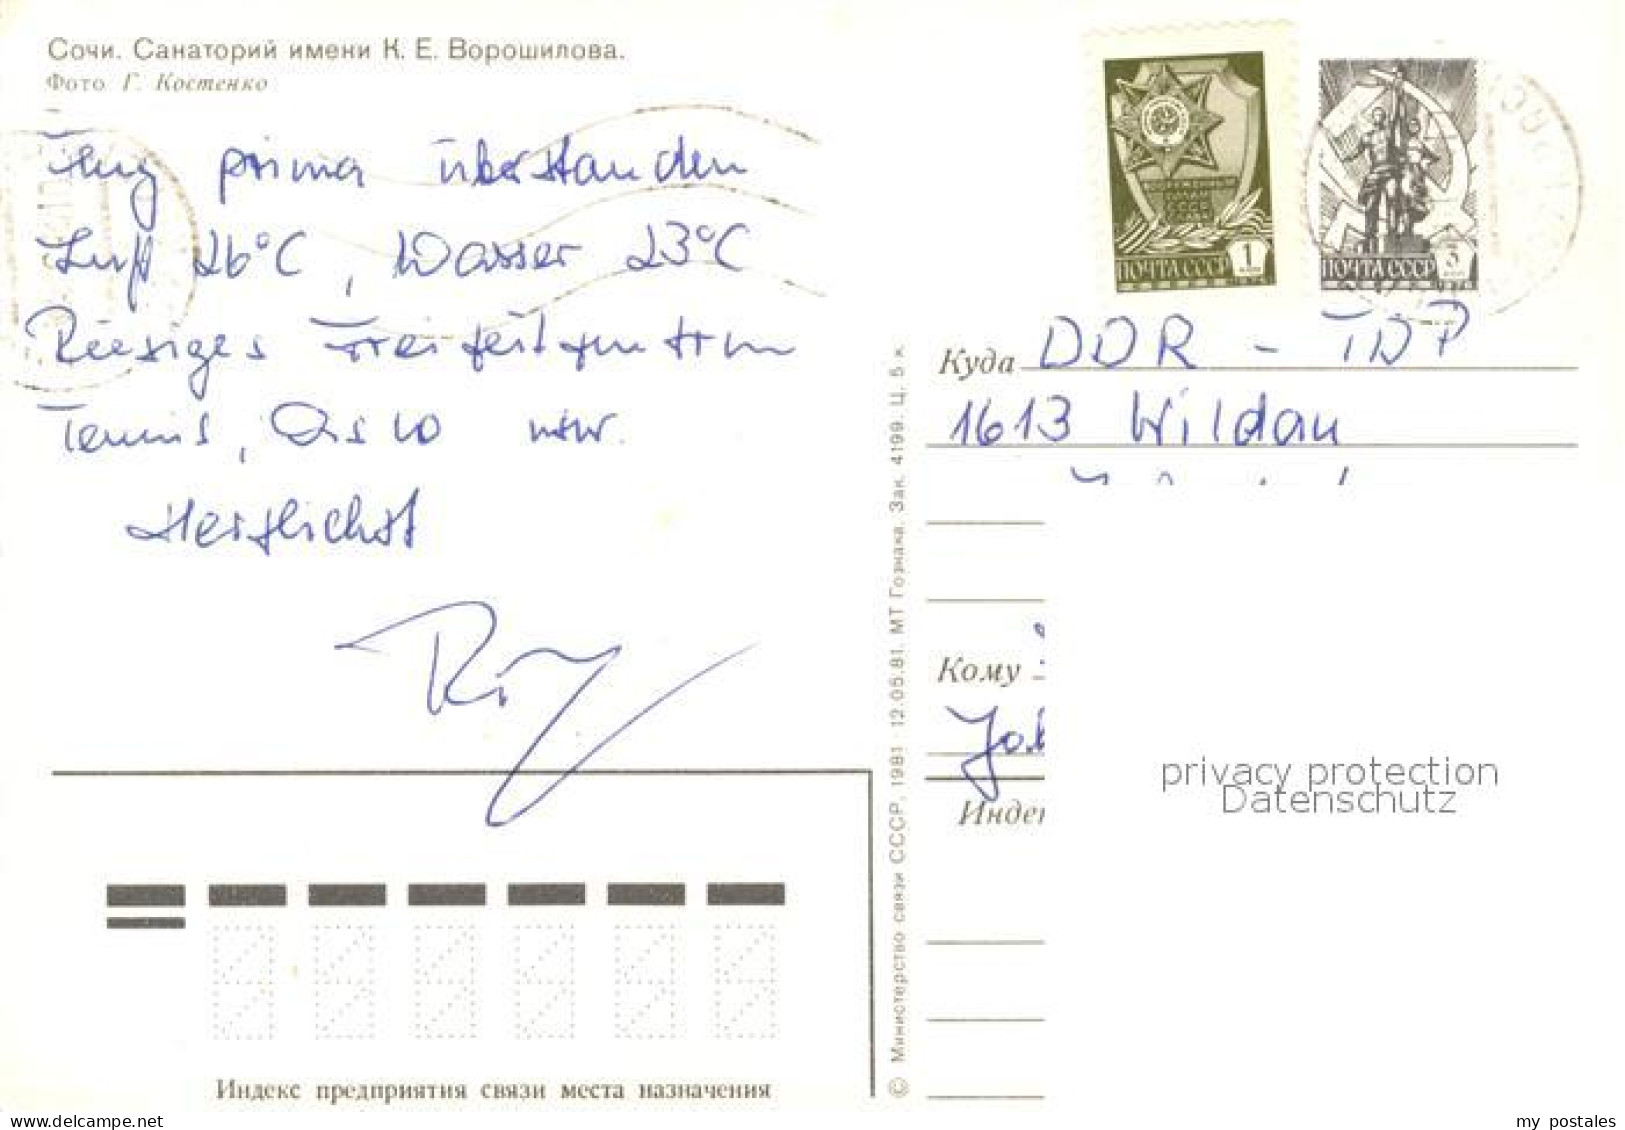 Сочи. Санаторий имени К. Е. Ворошилова.
Фото Г. Костенко
Flug prima überstanden
Luft 26°C, Wasser 23°C
Riesiges Freizeitzentrum
Tennis, Disko usw.
Herzlichst
ПОЧТА СССР 1 коп
ПОЧТА СССР 3 коп
Куда DDR - ГДР
1613 Wildau
Кому
Индек
privacy protection
Datenschutz
© Министерство связи СССР, 1981 · 12.05.81. МТ Гознака. Зак. 4199. Ц. 5 к.
Индекс предприятия связи места назначения
my postales